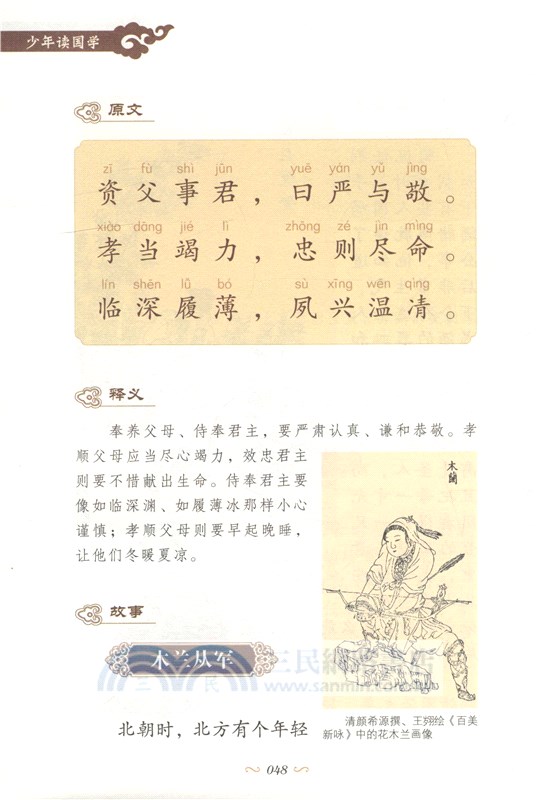 少年读国学
原文
zī fù shì jūn yuē yán yǔ jìng
资父事君，曰严与敬。
xiào dāng jié lì zhōng zé jìn mìng
孝当竭力，忠则尽命。
lín shēn lǚ bó sù xīng wēn qìng
临深履薄，夙兴温凊。
释义
奉养父母、侍奉君主，要严肃认真、谦和恭敬。孝
顺父母应当尽心竭力，效忠君主
则要不惜献出生命。侍奉君主要
像如临深渊、如履薄冰那样小心
谨慎；孝顺父母则要早起晚睡，
让他们冬暖夏凉。
木蘭
故事
木兰从军
三民網路書店
www.sanmin.com.tw
北朝时，北方有个年轻
清颜希源撰、王翙绘《百美
新咏》中的花木兰画像
048